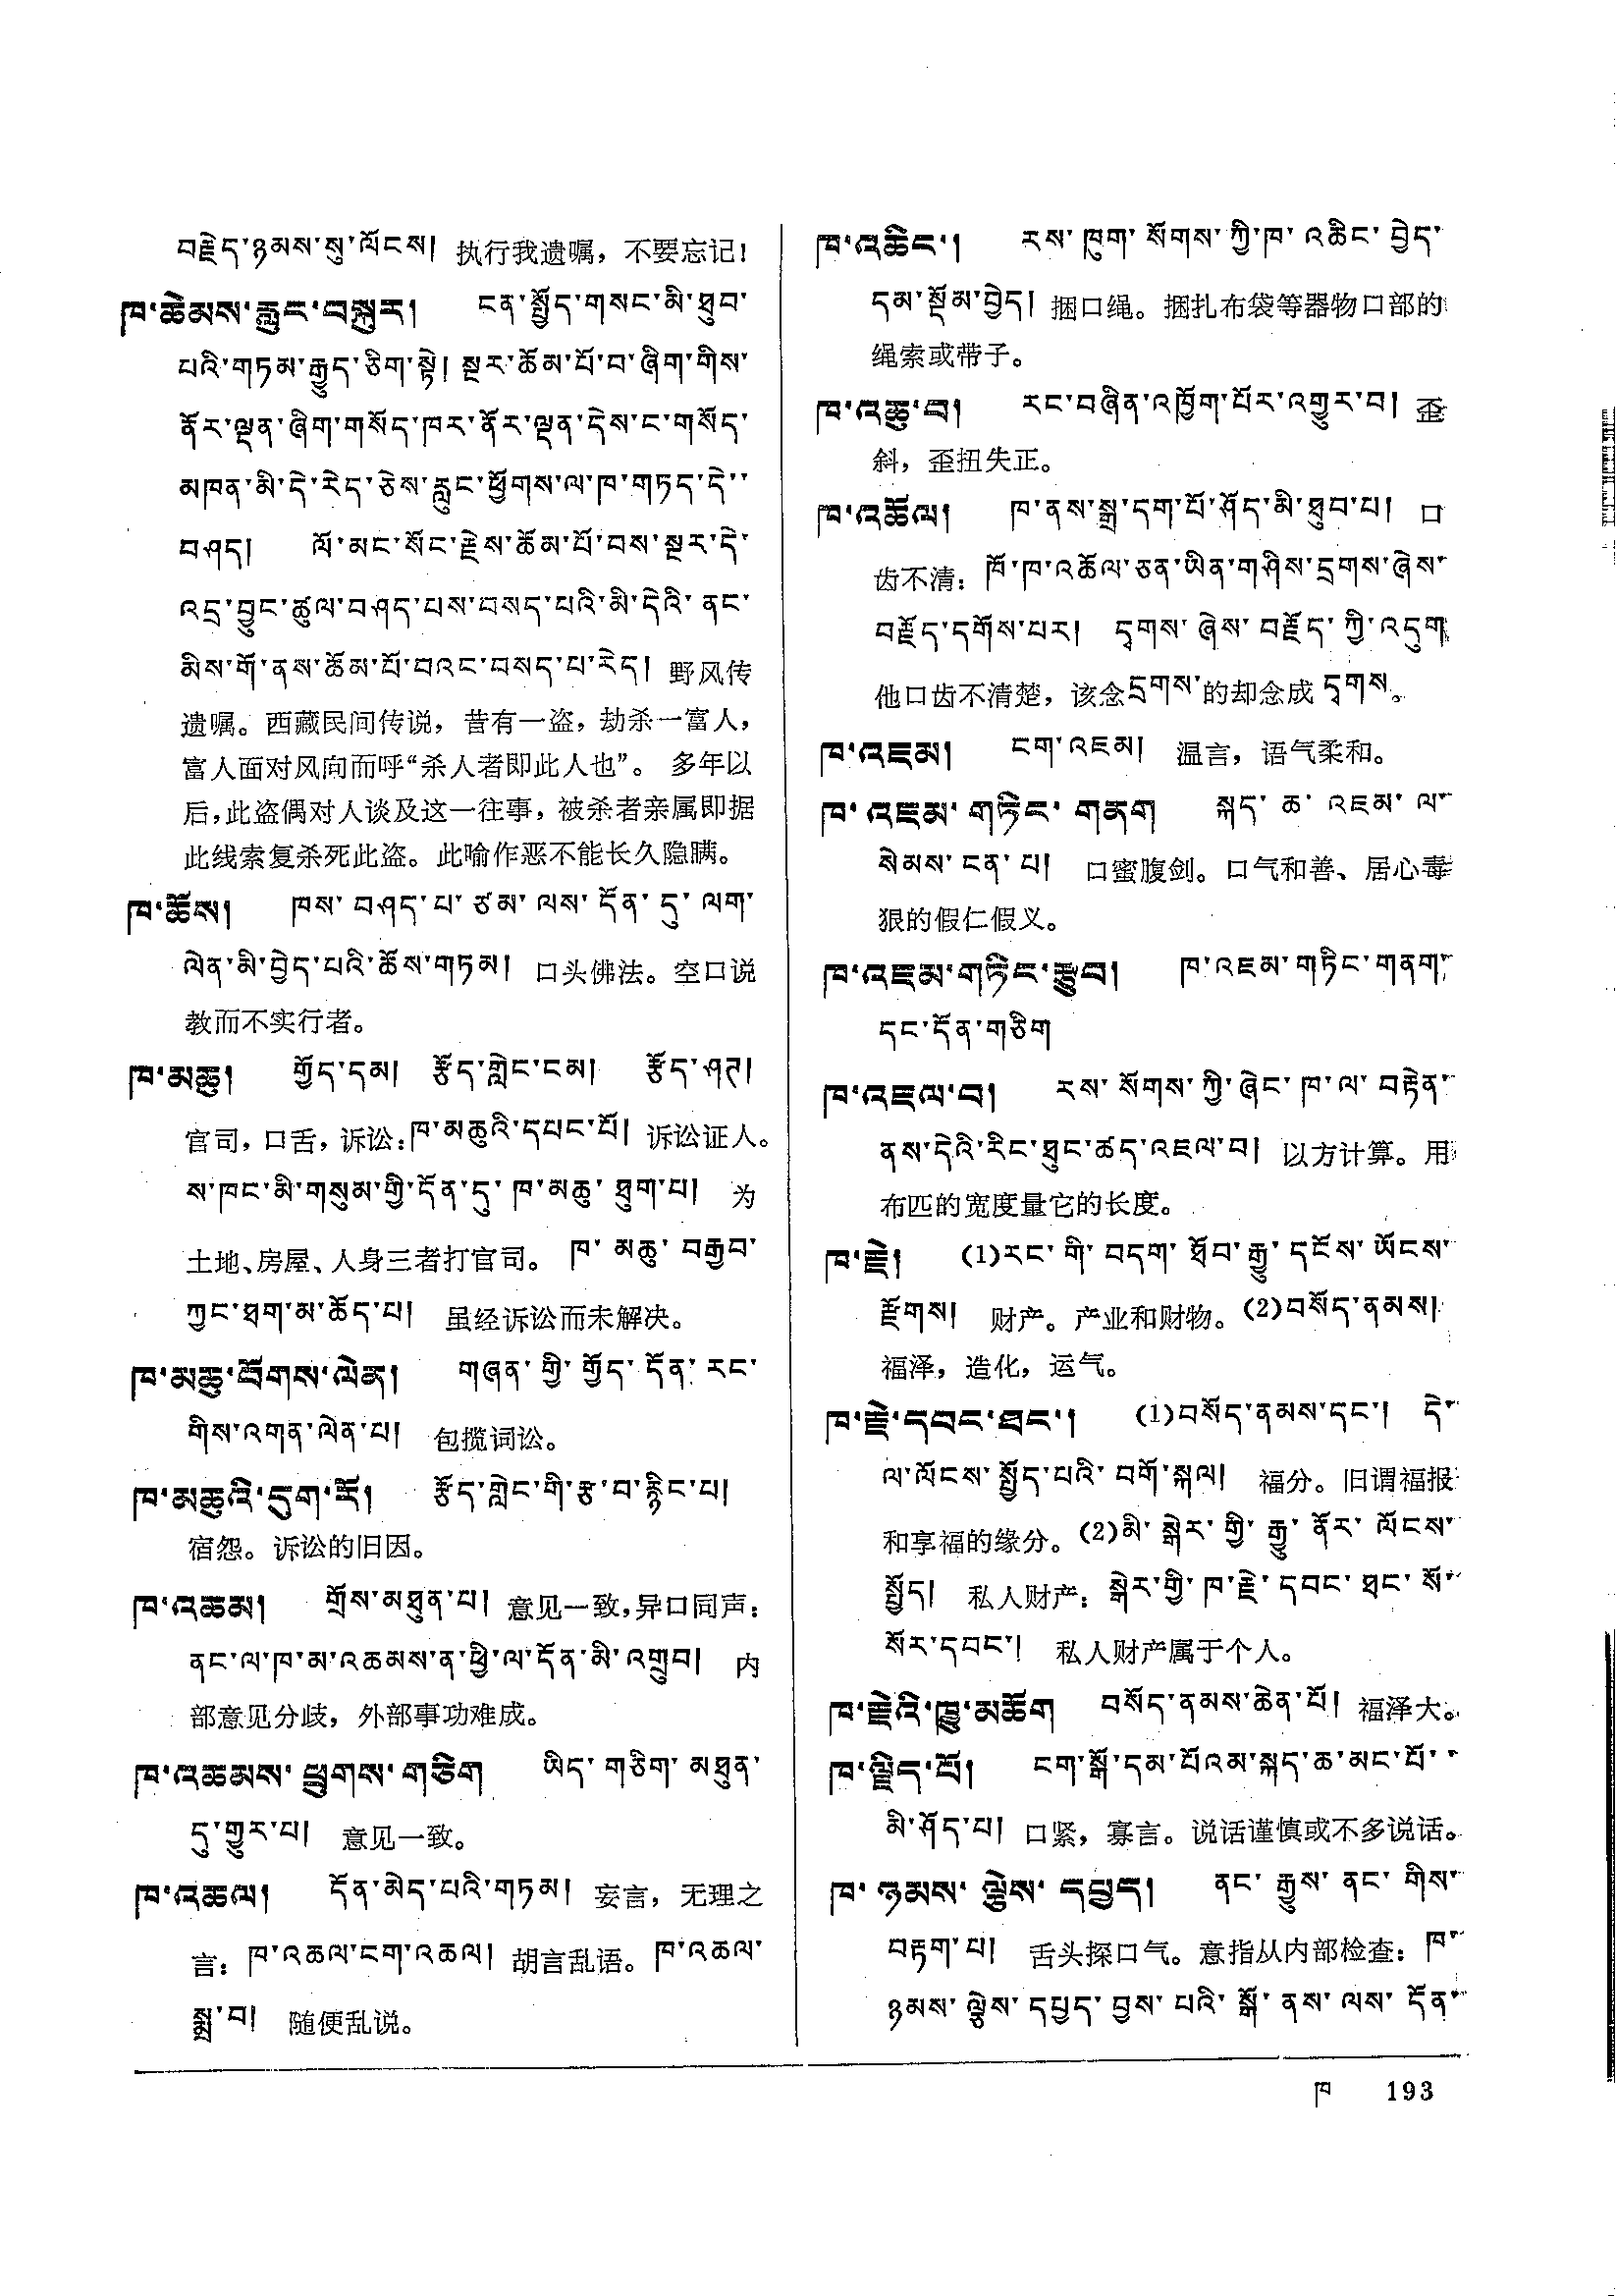 བརྗེད་ཉམས་སུ་ལོངས། 执行我遗嘱，不要忘记！
ཁ་ཆེམས་རླུང་བསྐུར། ངན་སྤྱོད་གསང་མི་ཐུབ་
པའི་གཏམ་རྒྱུད་ཅིག་སྟེ། སྔར་ཆོམ་པོ་བ་ཞིག་གིས་
ནོར་ལྡན་ཞིག་གསོད་ཁར་ནོར་ལྡན་དེས་ང་གསོད་
མཁན་མི་དེ་རེད་ཅེས་རླུང་ཕྱོགས་ལ་ཁ་གཏད་དེ་
བཤད། ལོ་མང་སོང་རྗེས་ཆོམ་པོ་བས་སྔར་དེ་
འདྲ་བྱུང་ཚུལ་བཤད་པས་བསད་པའི་མི་དེའི་ནང་
མིས་གོ་ནས་ཆོམ་པོ་བའང་བསད་པ་རེད། 野风传
遗嘱。西藏民间传说，昔有一盗，劫杀一富人，
富人面对风向而呼“杀人者即此人也”。 多年以
后，此盗偶对人谈及这一往事，被杀者亲属即据
此线索复杀死此盗。此喻作恶不能长久隐瞒。
ཁ་ཆོས། ཁས་བཤད་པ་ཙམ་ལས་དོན་དུ་ལག་
ལེན་མི་བྱེད་པའི་ཆོས་གཏམ། 口头佛法。空口说
教而不实行者。
ཁ་མཆུ། གྱོད་དམ། རྩོད་གླེང་ངམ། རྩོད་ཤཊ།
官司，口舌，诉讼：ཁ་མཆུའི་དཔང་པོ། 诉讼证人。
ས་ཁང་མི་གསུམ་གྱི་དོན་དུ་ཁ་མཆུ་ཐུག་པ། 为
土地、房屋、人身三者打官司。 ཁ་མཆུ་བརྒྱབ་
ཀྱང་ཐག་མ་ཆོད་པ། 虽经诉讼而未解决。
ཁ་མཆུ་བོགས་ལེན། གཞན་གྱི་གྱོད་དོན་རང་
གིས་འགན་ལེན་པ། 包揽词讼。
ཁ་མཆུའི་དུག་རོ། རྩོད་གླེང་གི་རྩ་བ་རྙིང་པ།
宿怨。诉讼的旧因。
ཁ་འཆམ། གྲོས་མཐུན་པ། 意见一致，异口同声：
ནང་ལ་ཁ་མ་འཆམས་ན་ཕྱི་ལ་དོན་མི་འགྲུབ། 内
部意见分歧，外部事功难成。
ཁ་འཆམས་ཕྲུགས་གཅིག ཡིད་གཅིག་མཐུན་
དུ་གྱུར་པ། 意见一致。
ཁ་འཆལ། དོན་མེད་པའི་གཏམ། 妄言，无理之
言：ཁ་འཆལ་ངག་འཆལ། 胡言乱语。ཁ་འཆལ་
སྨྲ་བ། 随便乱说。
ཁ་འཆིང་། རས་ཁུག་སོགས་ཀྱི་ཁ་འཆིང་བྱེད་
དམ་སྡོམ་བྱེད། 捆口绳。捆扎布袋等器物口部的
绳索或带子。
ཁ་འཆུ་བ། རང་བཞིན་འཁྱོག་པོར་འགྱུར་བ། 歪
斜，歪扭失正。
ཁ་འཆོལ། ཁ་ནས་སྒྲ་དག་པོ་ཤོད་མི་ཐུབ་པ། 口
齿不清：ཁོ་ཁ་འཆོལ་ཅན་ཡིན་གཤིས་དྲགས་ཞེས་
བརྗོད་དགོས་པར། དྭགས་ཞེས་བརྗོད་ཀྱི་འདུག
他口齿不清楚，该念དྲགས་的却念成 དྭགས。
ཁ་འཇམ། ངག་འཇམ། 温言，语气柔和。
ཁ་འཇམ་གཏིང་གནག སྐད་ཆ་འཇམ་ལ་
སེམས་ངན་པ། 口蜜腹剑。口气和善、居心毒
狠的假仁假义。
ཁ་འཇམ་གཏིང་རྩུབ། ཁ་འཇམ་གཏིང་གནག་
དང་དོན་གཅིག
ཁ་འཇལ་བ། རས་སོགས་ཀྱི་ཞེང་ཁ་ལ་བརྟེན་
ནས་དེའི་རིང་ཐུང་ཚད་འཇལ་བ། 以方计算。用
布匹的宽度量它的长度。
ཁ་རྗེ། (1)རང་གི་བདག་ཐོབ་རྒྱུ་དངོས་ཡོངས་
རྫོགས། 财产。产业和财物。(2)བསོད་ནམས།
福泽，造化，运气。
ཁ་རྗེ་དབང་ཐང་། (1)བསོད་ནམས་དང་། དེ་
ལ་ལོངས་སྤྱོད་པའི་བགོ་སྐལ། 福分。旧谓福报
和享福的缘分。(2)མི་སྒེར་གྱི་རྒྱུ་ནོར་ལོངས་
སྤྱོད། 私人财产：སྒེར་གྱི་ཁ་རྗེ་དབང་ཐང་སོ་
སོར་དབང་། 私人财产属于个人。
ཁ་རྗེའི་ཁྱུ་མཆོག བསོད་ནམས་ཆེན་པོ། 福泽大。
ཁ་ལྗིད་པོ། ངག་སྒོ་དམ་པོའམ་སྐད་ཆ་མང་པོ་
མི་ཤོད་པ། 口紧，寡言。说话谨慎或不多说话。
ཁ་ཉམས་ལྕེས་དཔྱད། ནང་རྒྱུས་ནང་གིས་
བརྟག་པ། 舌头探口气。意指从内部检查：ཁ་
ཉམས་ལྕེས་དཔྱད་བྱས་པའི་སྒོ་ནས་ལས་དོན་
ཁ 193